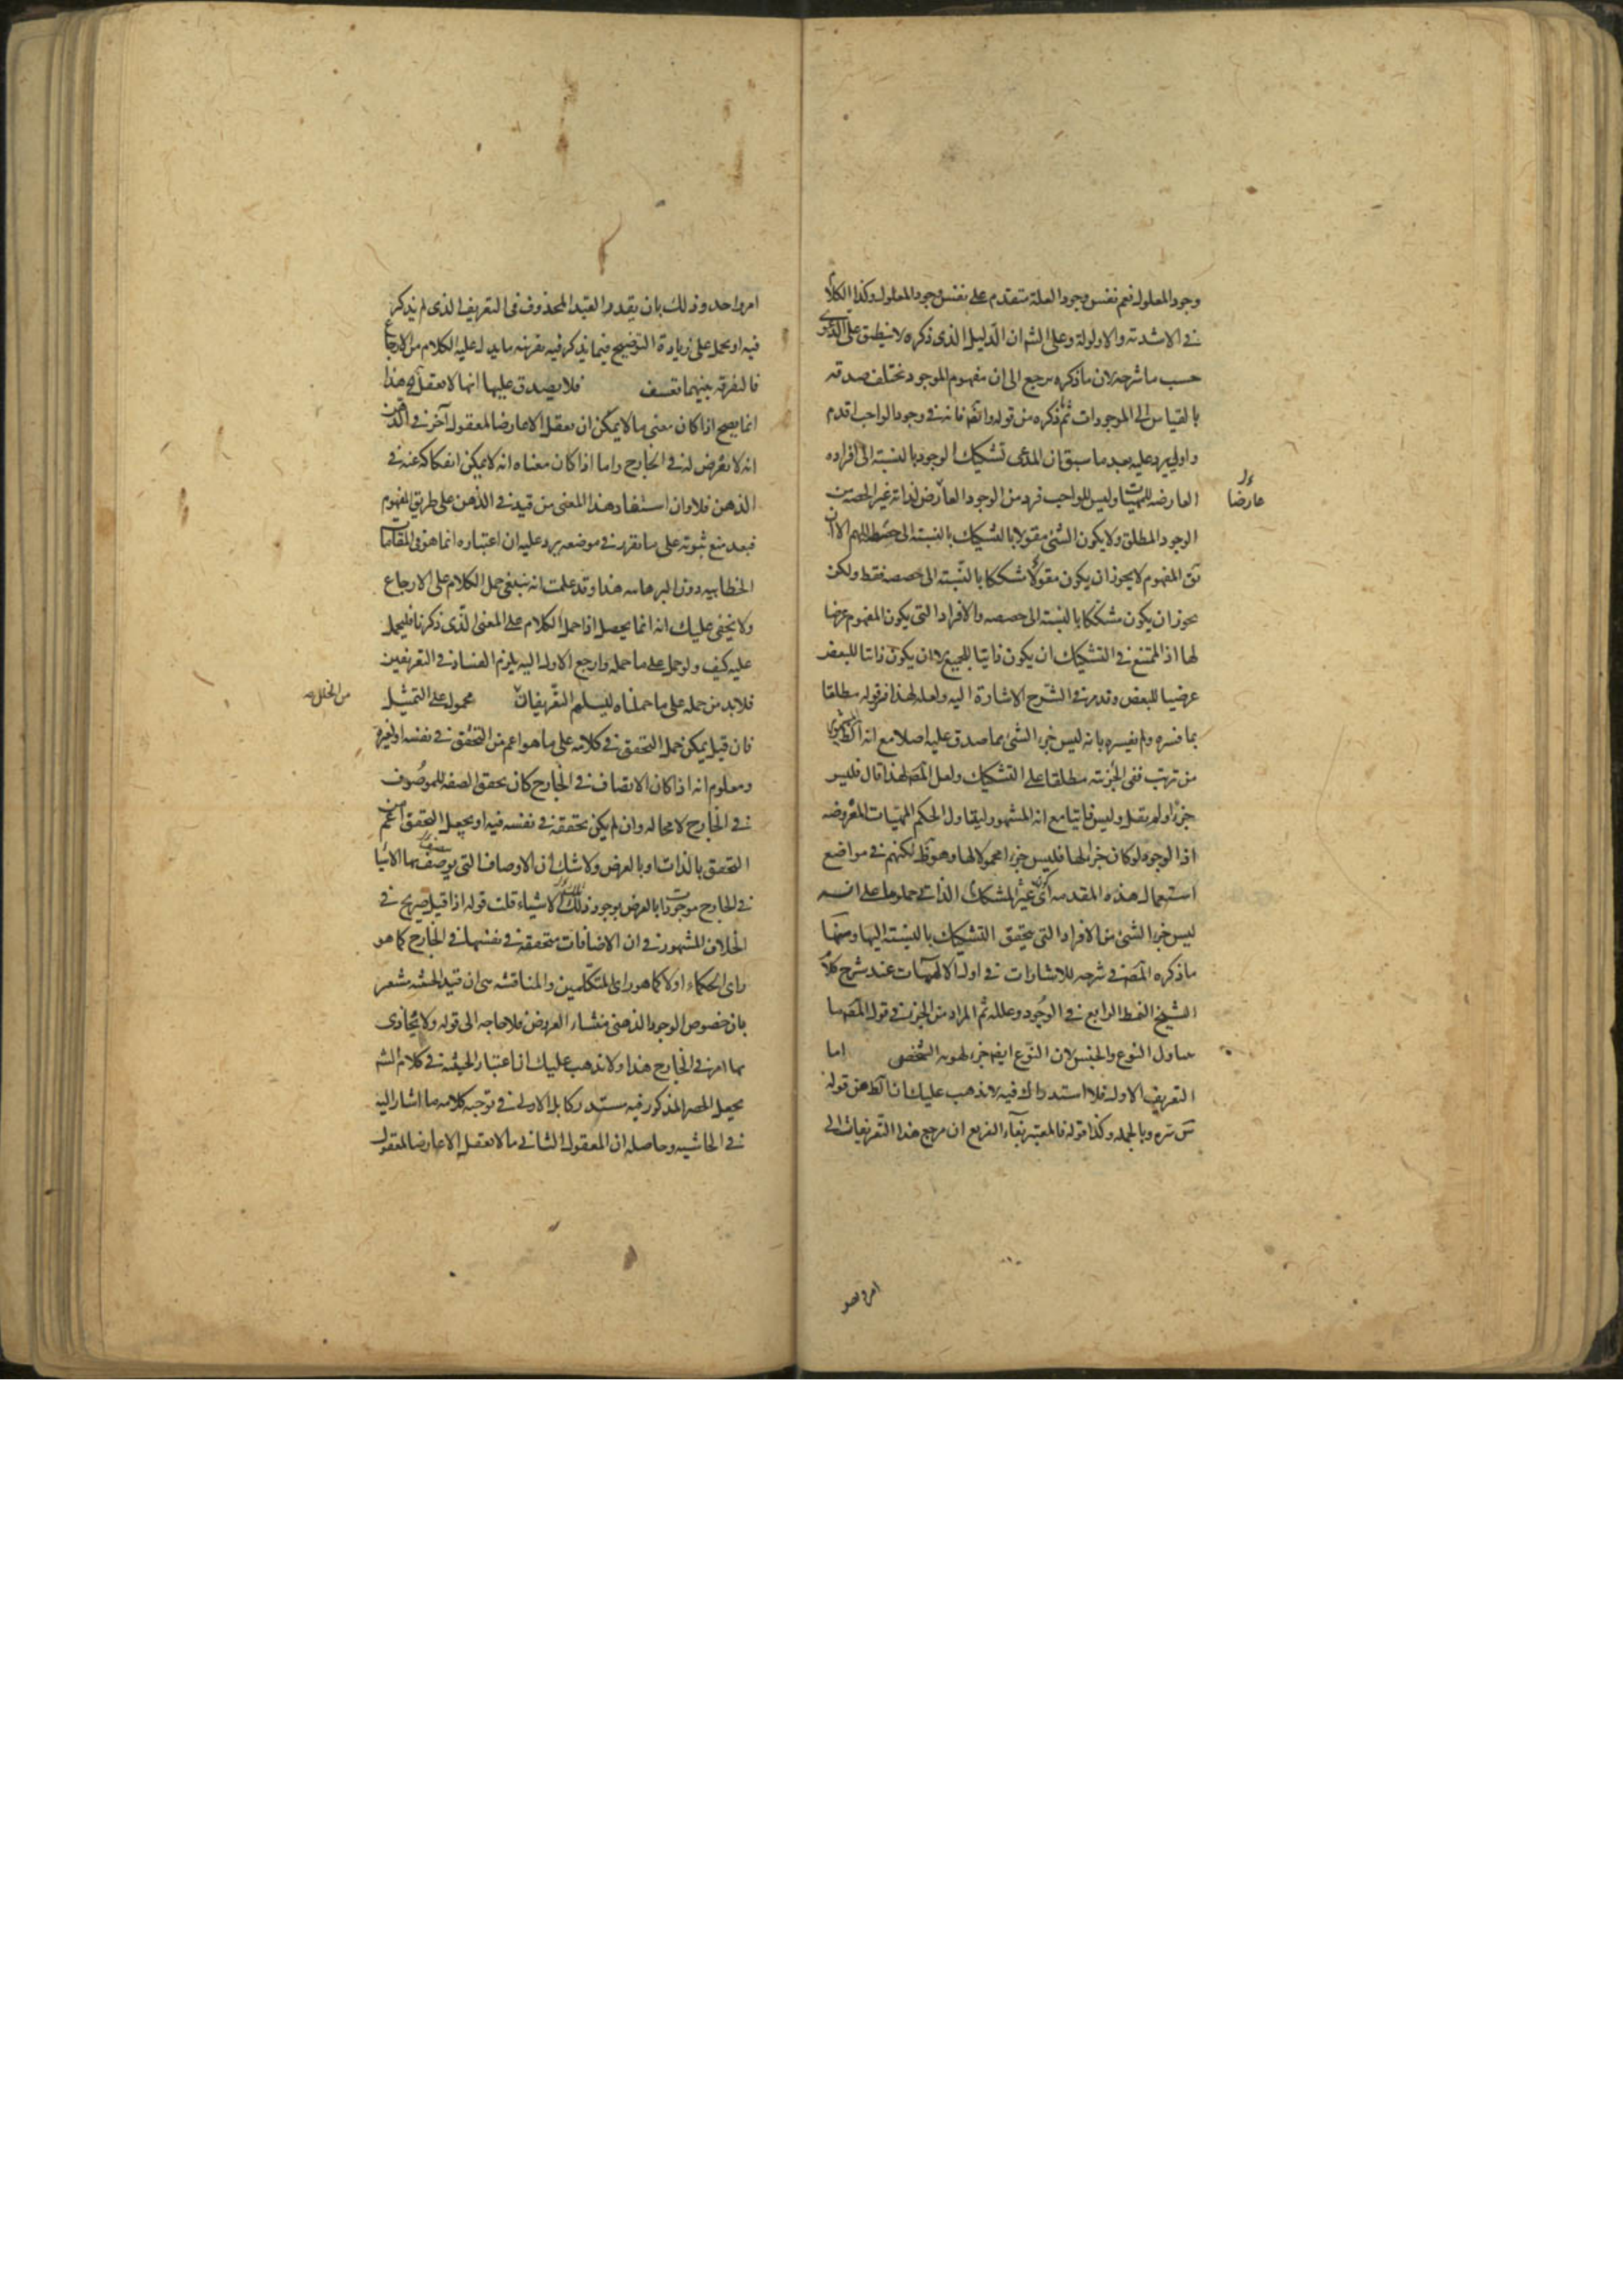 وجود المعلول فنعم نفس وجود العلة متقدم على نفس وجود المعلول وكذا الكلام
في الاشدية والاولوية وعلى الشه ان الدليل الذى ذكره لا ينطبق على الدعوى
حسب ما شرحه لان ما ذكره يرجع الى ان مفهوم الموجود تختلف صدقه
بالقياس الى الموجودات ثم ما ذكره من قوله وايضا فانه في وجود الواجب اقدم
واولى يرد عليه بعد ما سبق ان المدعى تشكيك الوجود بالنسبة الى افراده
العارضه للمهيات وليس للواجب فرد من الوجود العارض لذاته غير الحصه من
عارضا
الوجود المطلق ولا يكون الشئ مقولا بالتشكيك بالنسبته الى اللهم الا ان
يق المفهوم لا يجوز ان يكون مقولا مشككا بالنسبته الى حصصه فقط ولكن
يجوز ان يكون مشككا بالنسبته الى حصصه والافراد التى يكون المفهوم عرضا
لها اذ الممتنع في التشكيك ان يكون ذاتيا للجميع لا ان يكون ذاتيا للبعض
عرضيا للبعض وقد مر في الشرح الاشارة اليه ولعله لهذا قوله مطلقا
بما فسره ولم يفسره بانه ليس جزء الشئ مما صدق عليه اصلا مع انه
من ترتب نفى الجزئته مطلقا على التشكيك ولعل المص لهذا قال فليس
جزءا ولم يقل وليس ذاتيا مع انه المشهور ليتناول الحكم المهيات المعروضه
اذ الوجود لو كان جزء الها فليس جزءا محمولا لها وهو ظ لكنهم في مواضع
استعمال هذه المقدمه اى غير المشكك الذاتي حملوها على انه
ليس جزء الشئ من الافراد التى يتحقق التشكيك بالنسبته اليها ومنها
ما ذكره المص في شرحه للاشارات في اول الالهيات عند شرح كلام
الشيخ النمط الرابع في الوجود وعلله ثم المراد من الجزء في قول المص ما
يتناول النوع والجنس لان النوع ايضا جزء لهويه الشخص اما
التعريف الاول فلا استدراك فيه لا يذهب عليك ان الظ من قوله
وبالجمله وكذا قوله فالمعتبر بفاء التفريع ان مرجع هذا التعريفات الى
امر واحد وذلك بان يقدر القيد المحذوف فى التعريف الذى لم يذكر
فيه او يحمل على زيادة التوضيح فيما يذكر فيه بقرينه ما يدل عليه الكلام من الارجاع
فالتفرقه بينهما تعسف فلا يصدق عليها انها لا تعقل الخ هذا
انما يصح اذا كان معنى ما لا يمكن ان يعقل الا عارضا لمعقول آخر في الذهن
انه لا يعرض له في الخارج واما اذا كان معناه انه لا يمكن انفكاكه عنه في
الذهن فلا وان استفاد هذا المعنى من قيد في الذهن على طريق المفهوم
فبعد منع ثبوته على ما تقرر في موضعه يرد عليه ان اعتباره انما هو في المقامات
الخطابيه دون البرهانيه هذا وقد علمت انه ينبغي حمل الكلام على الارجاع
ولا يخفى عليك انه انما يحصل اذا حمل الكلام على المعنى الذى ذكرنا فليحمل
عليه كيف ولو حمل على ما حمله وارجع الاول اليه يلزم الفساد في التعريفين
فلا بد من حمله على ما حملناه ليسلم التعريفات محمول على التمثيل
من الخلل صه
فان قيل يمكن حمل التحقق في كلامه على ما هو اعم من التحقق في نفسه او لغيره
ومعلوم انه اذا كان الاتصاف في الخارج كان تحقق الصفه للموصوف
في الخارج لا محاله وان لم يكن تحققه في نفسه فيه او يجعل التحقق اعم من
التحقق بالذات او بالعرض ولا شك ان الاوصاف التى يوصف بها الاشيا
في الخارج موجودا بالعرض بوجود تلك الاشياء قلت قوله اذا قيل صريح في
الخلاف المشهور في ان الاضافات متحققه في نفسها في الخارج كما هو
راى الحكماء اولا كما هو راى المتكلمين والمناقشه في ان قيد الحيثيه مشعر
بان خصوص الوجود الذهنى منشاء العروض فلا حاجه الى قوله ولا يحاذى
بها امر في الخارج هذا ولا يذهب عليك ان اعتبار الحيثيه في كلام الشه
يجعل الحصر المذكور فيه مستدركا بل الاولى في توجيه كلامه ما اشار اليه
في الحاشيه وحاصله ان المعقول الثانى ما لا يعقل الا عارضا لمعقول